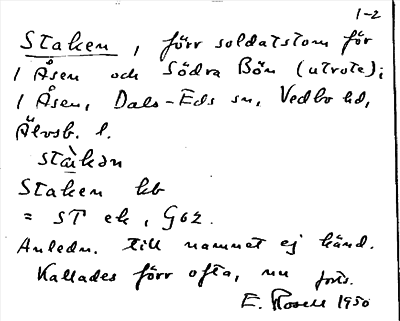 1-2
Staken, förr soldatstom för
1 Åsen och Södra Bön (utrote);
1 Åsen, Dals-Eds sn, Vedbo hd,
Älvsb. l.
stàkən
Staken hb
= ST ek, G62.
Anledn. till namnet ej känd.
Kallades förr ofta, nu forts.
E. Rosell 1950